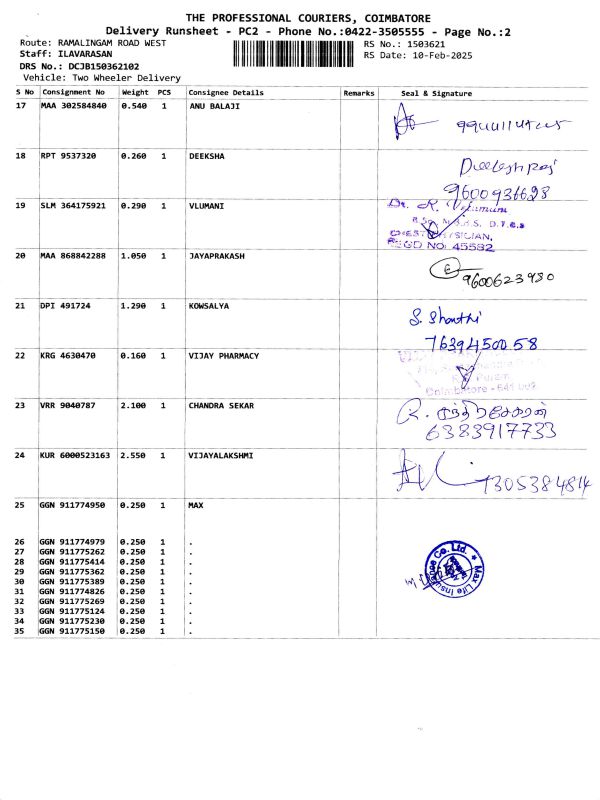 THE PROFESSIONAL COURIERS, COIMBATORE
Delivery Runsheet - PC2 - Phone No.:0422-3505555 - Page No.:2
Route: RAMALINGAM ROAD WEST
RS No.: 1503621
Staff: ILAVARASAN
RS Date: 10-Feb-2025
DRS No.: DCJB150362102
Vehicle: Two Wheeler Delivery
S No Consignment No Weight PCS Consignee Details Remarks Seal & Signature
17 MAA 302584840 0.540 1 ANU BALAJI
18 RPT 9537320 0.260 1 DEEKSHA
9600936628
19 SLM 364175921 0.290 1 VLUMANI
Dr. K. Velumani
D.T.C.D
CHEST PHYSICIAN,
REGD NO: 45582
20 MAA 868842288 1.050 1 JAYAPRAKASH
9600623980
21 DPI 491724 1.290 1 KOWSALYA
S. Shanthi
7639450058
22 KRG 4630470 0.160 1 VIJAY PHARMACY
Puram
Coimbatore - 641 002
23 VRR 9040787 2.100 1 CHANDRA SEKAR
R. சந்திரசேகரன்
6383917733
24 KUR 6000523163 2.550 1 VIJAYALAKSHMI
7305384814
25 GGN 911774950 0.250 1 MAX
26 GGN 911774979 0.250 1 .
27 GGN 911775262 0.250 1 .
28 GGN 911775414 0.250 1 .
29 GGN 911775362 0.250 1 .
30 GGN 911775389 0.250 1 .
31 GGN 911774826 0.250 1 .
32 GGN 911775269 0.250 1 .
33 GGN 911775124 0.250 1 .
34 GGN 911775230 0.250 1 .
35 GGN 911775150 0.250 1 .
Max Life Insurance Co. Ltd. *